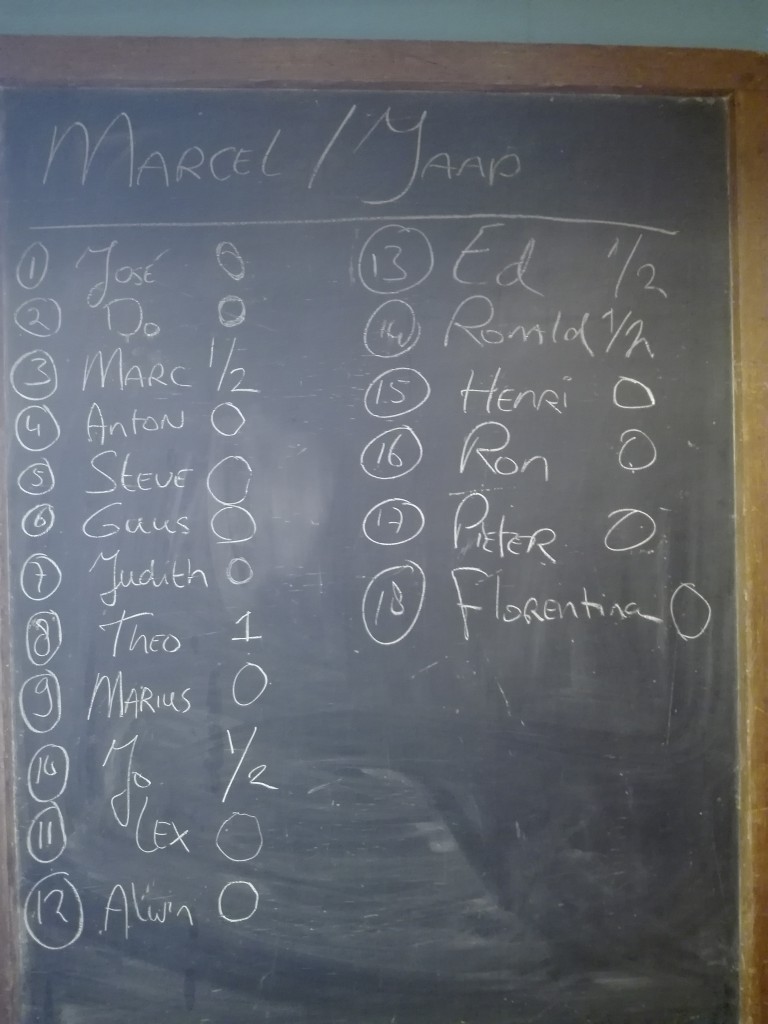 MARCEL / JAAP
1 José 0
2 Do 0
3 MARC 1/2
4 Anton 0
5 STEVE 0
6 Guus 0
7 Judith 0
8 THEO 1
9 MARIUS 0
10 Jo 1/2
11 LEX 0
12 Alwin 0
13 Ed 1/2
14 Ronald 1/2
15 HENRI 0
16 Ron 0
17 PIETER 0
18 FLORENTINA 0